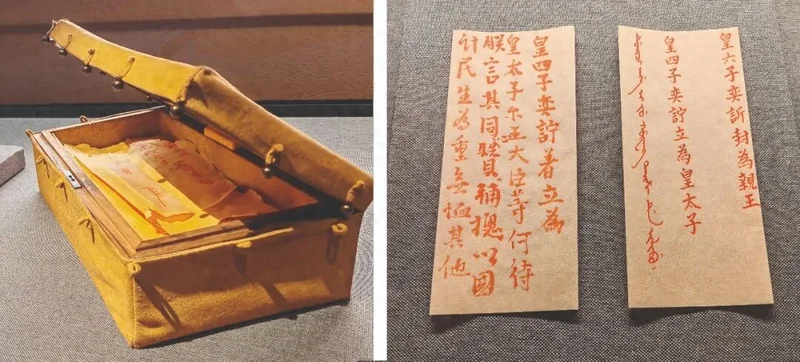 皇四子奕詝著立為
皇太子尔王大臣等何待
朕言其同心贊輔總以國
計民生為重無恤其他
皇六子奕訢封為親王
皇四子奕詝立為皇太子